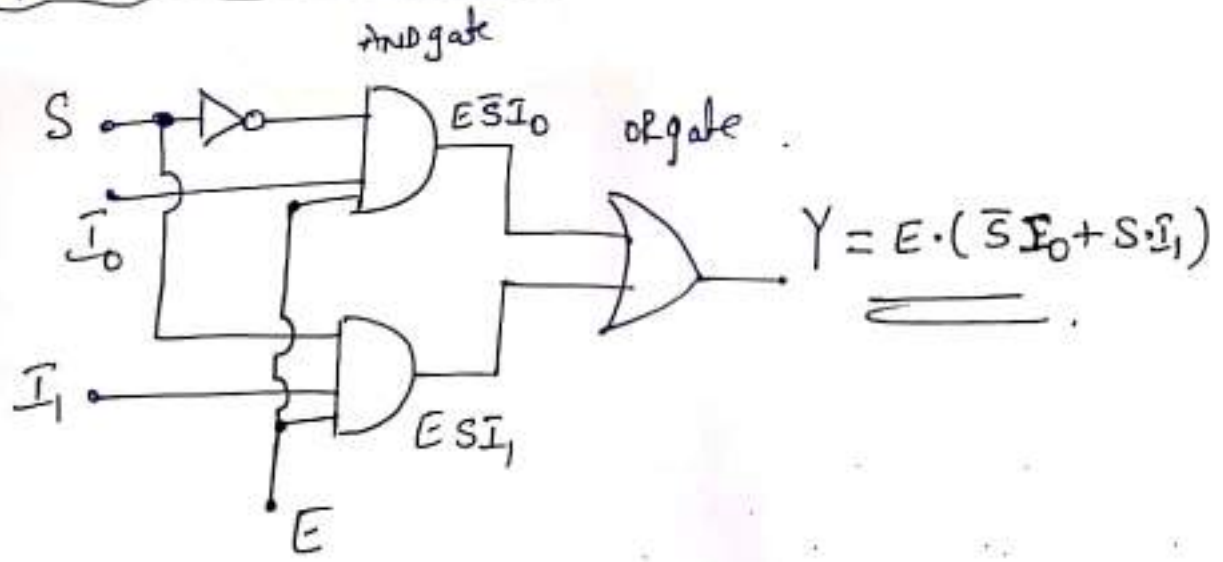 AND gate
S
ES̄I₀
OR gate
I₀
Y = E·(S̄I₀ + S·I₁)
I₁
ESI₁
E